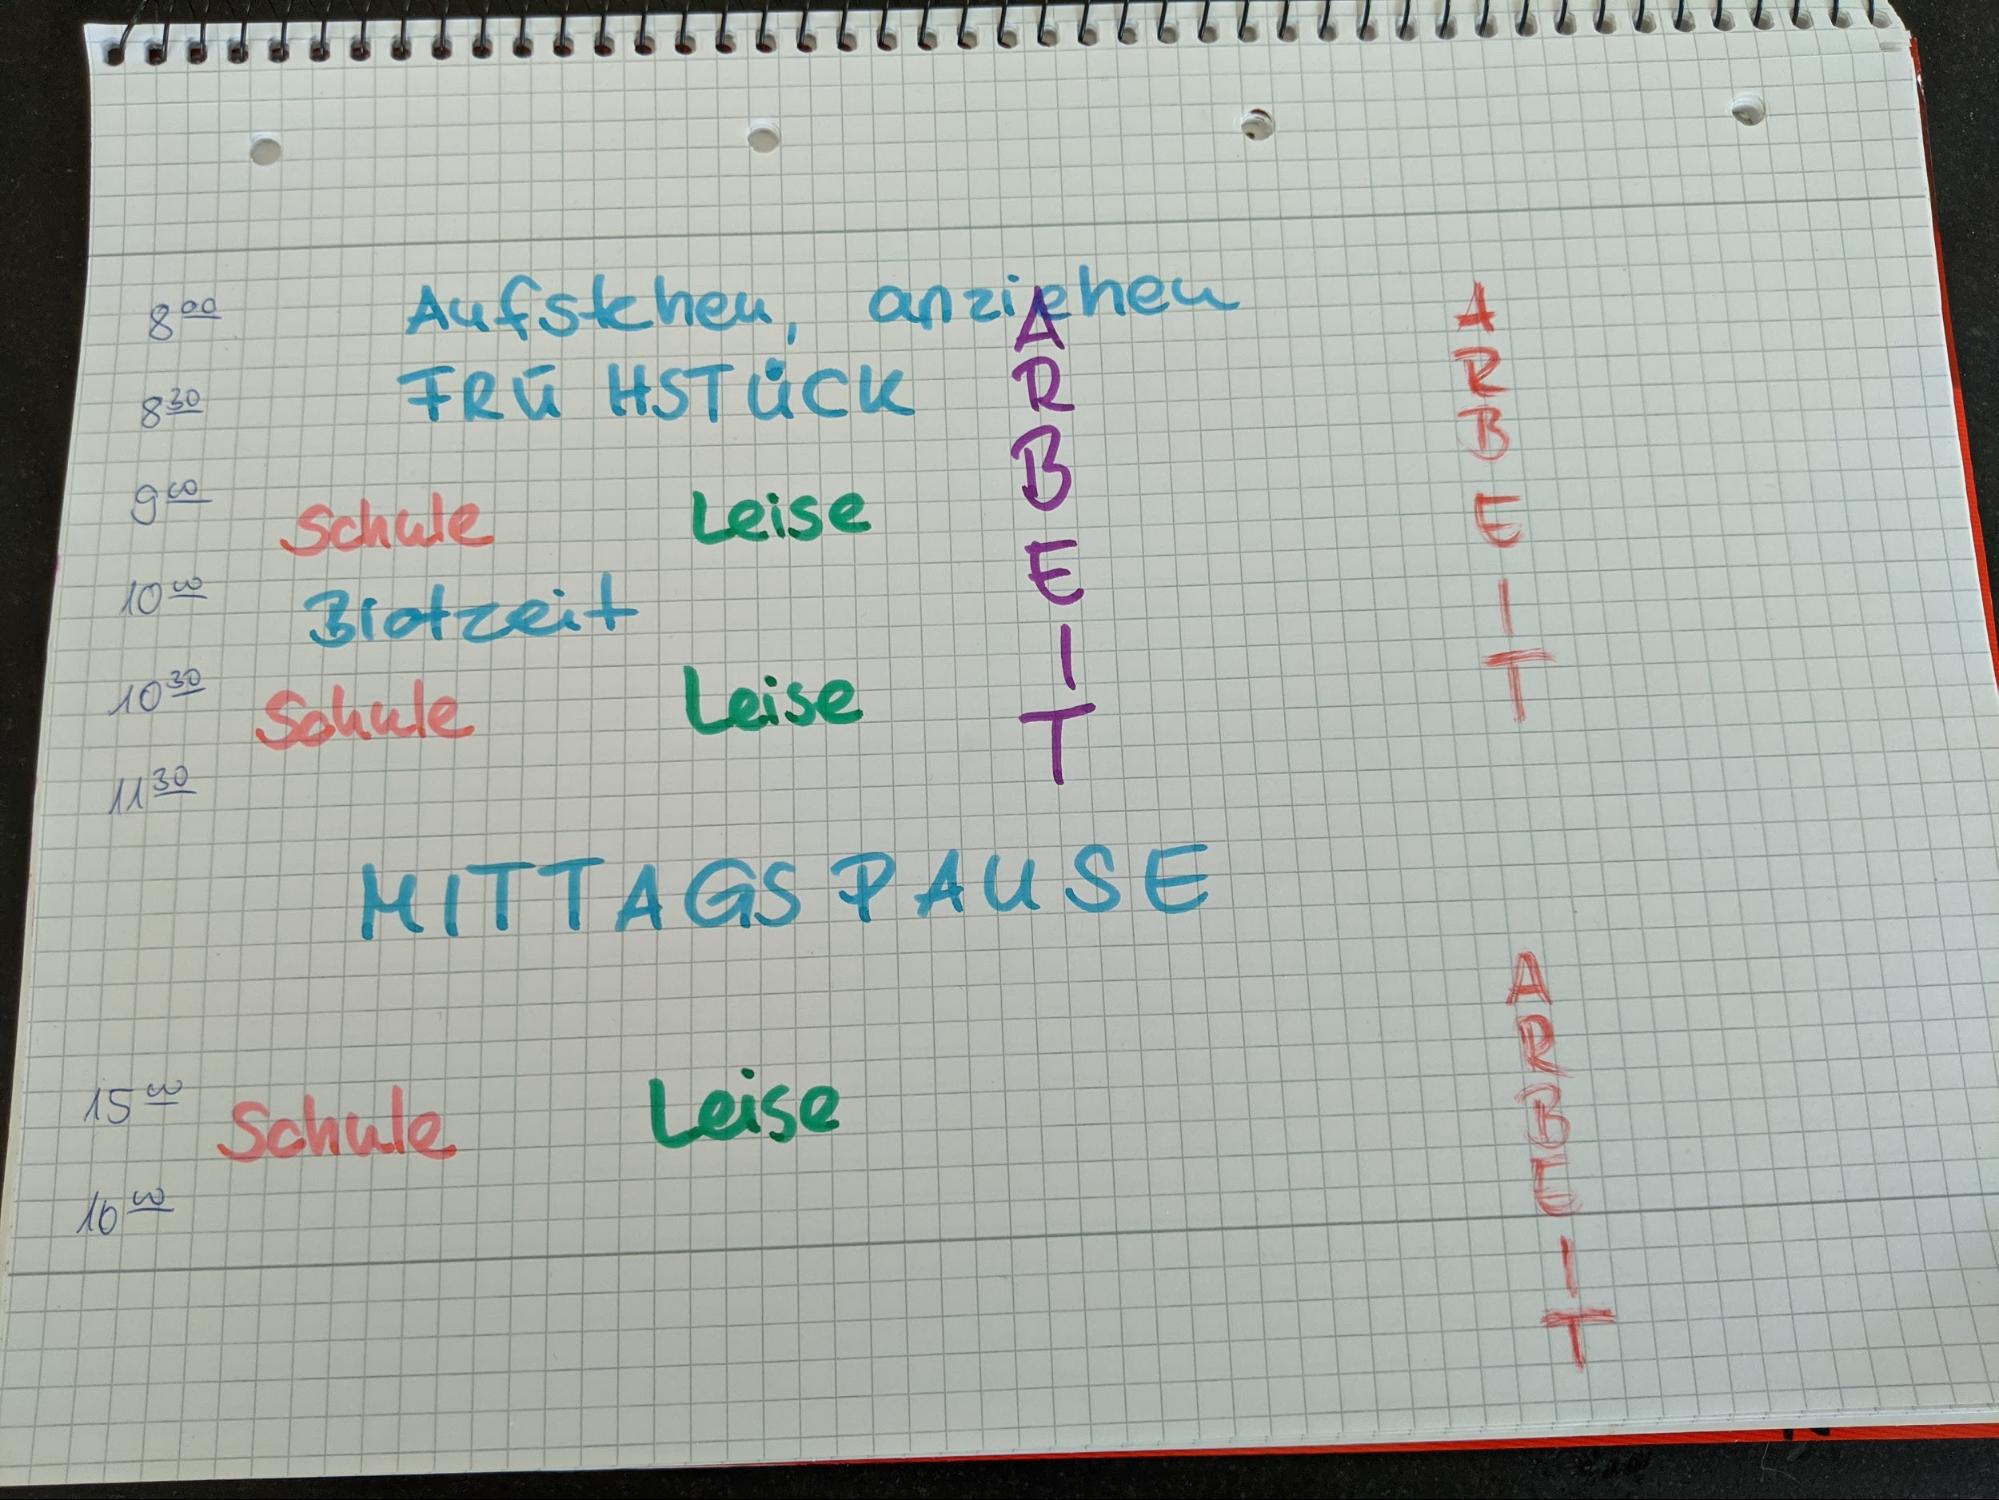 8⁰⁰ Aufstehen, anziehen
8³⁰ FRÜHSTÜCK
9⁰⁰ Schule Leise
10⁰⁰ Brotzeit
10³⁰ Schule Leise
11³⁰
ARBEIT
ARBEIT
MITTAGSPAUSE
15⁰⁰ Schule Leise
16⁰⁰
ARBEIT